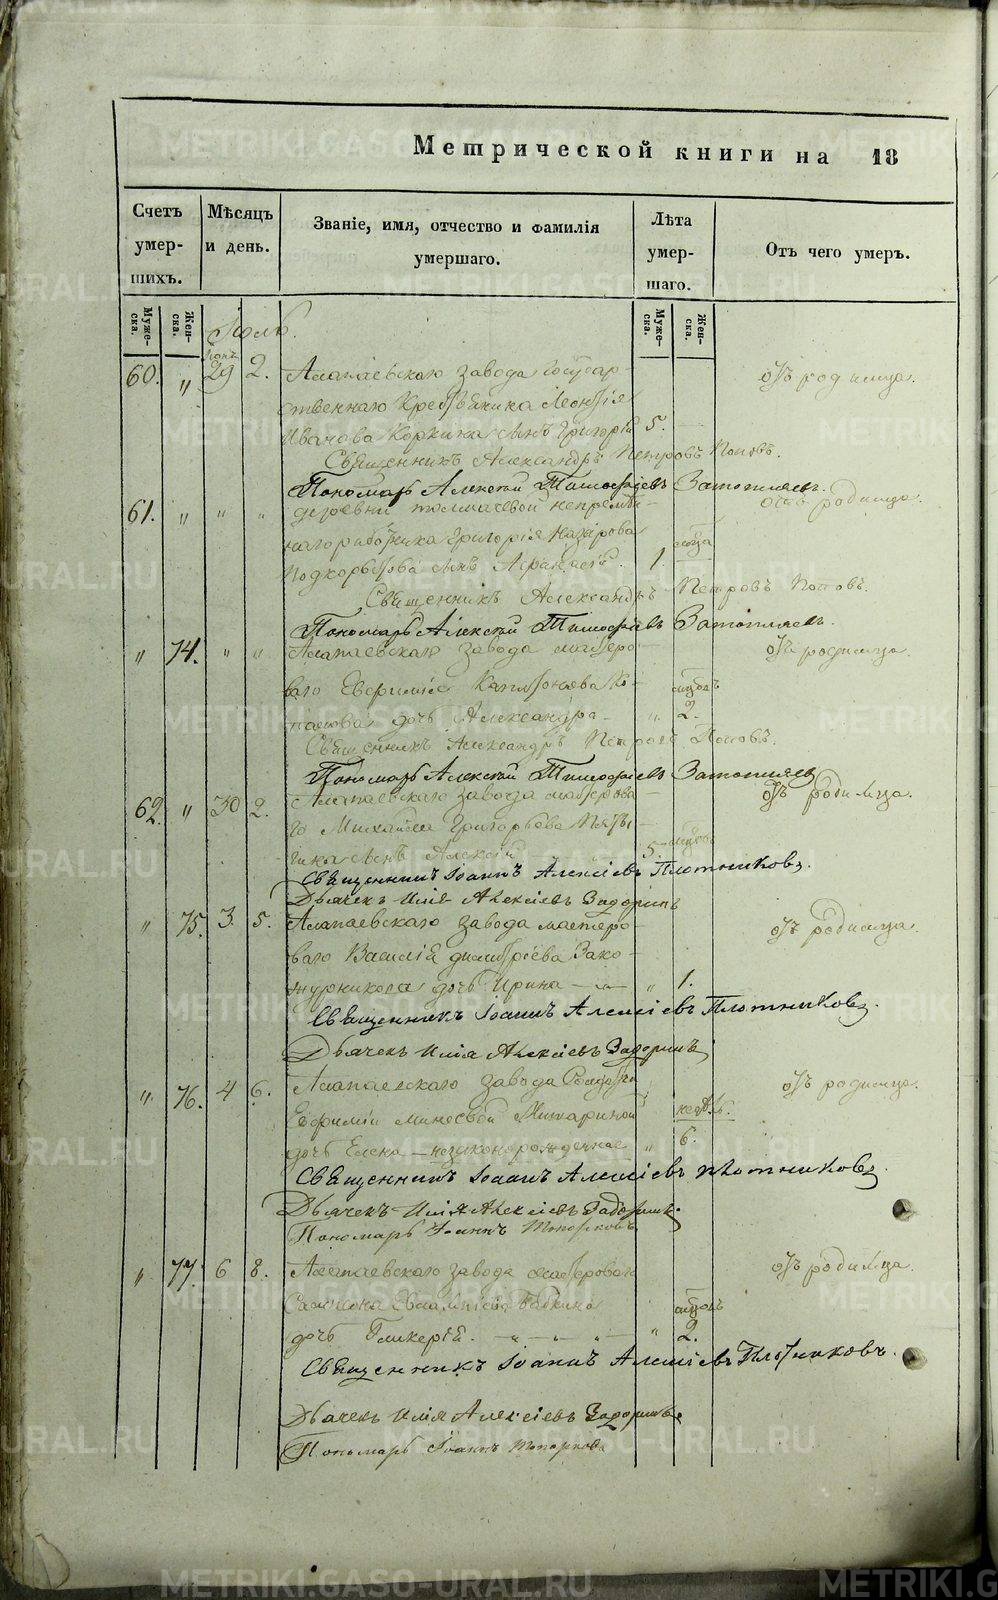 Метрической книги на 18
Счетъ умер-шихъ.
Мѣсяцъ и день.
Званіе, имя, отчество и фамилія умершаго.
Лѣта умер-шаго.
Отъ чего умеръ.
Муже-ска.
Жен-ска.
Муже-ска.
Жен-ска.
Іюль.
60. " 29 2. Алапаевскаго завода Государ-
отъ родимца.
ственнаго Крестьянина Леонтія
Иванова Коркина сынъ Григорій 5.
Священникъ Александръ Петровъ Поповъ.
Пономарь Алексѣй Тимофѣевъ
61. " " " деревни Толмачевой непремѣн-
отъ родимца.
наго работника Григорія Назарова
Подкорытова сынъ 1.
Священникъ Александръ Петровъ Поповъ.
Пономарь Алексѣй Тимофѣевъ
" 74. " " Алапаевскаго завода мастеро-
отъ родимца.
ваго
дочь Александра " 2.
Священникъ Александръ Петровъ Поповъ.
Пономарь Алексѣй Тимофѣевъ
62. " 30 2. Алапаевскаго завода мастерова-
отъ родимца.
го Михаила Григорьева
сынъ Алексѣй 5
Священникъ Іоаннъ Алексіевъ Плотниковъ.
Дьячекъ Илія Алексіевъ Задоринъ
" 75. 3. 5. Алапаевскаго завода мастеро-
отъ родимца.
ваго Василія Димитріева Зако-
журникова дочь Ирина " 1.
Священникъ Іоаннъ Алексіевъ Плотниковъ.
Дьячекъ Илія Алексіевъ Задоринъ
" 76. 4 6. Алапаевскаго завода
отъ родимца.
Евфиміи
дочь Елена незаконорожденная " 6.
Священникъ Іоаннъ Алексіевъ Плотниковъ.
Дьячекъ Илія Алексіевъ Задоринъ.
Пономарь Іоаннъ Топорковъ
" 77. 6 8. Алапаевскаго завода мастероваго
отъ родимца.
Бабкина
дочь Гликерія. " 2.
Священникъ Іоаннъ Алексіевъ Плотниковъ.
Дьячекъ Илія Алексіевъ Задоринъ.
Пономарь Іоаннъ Топорковъ
METRIKI.GASO-URAL.RU